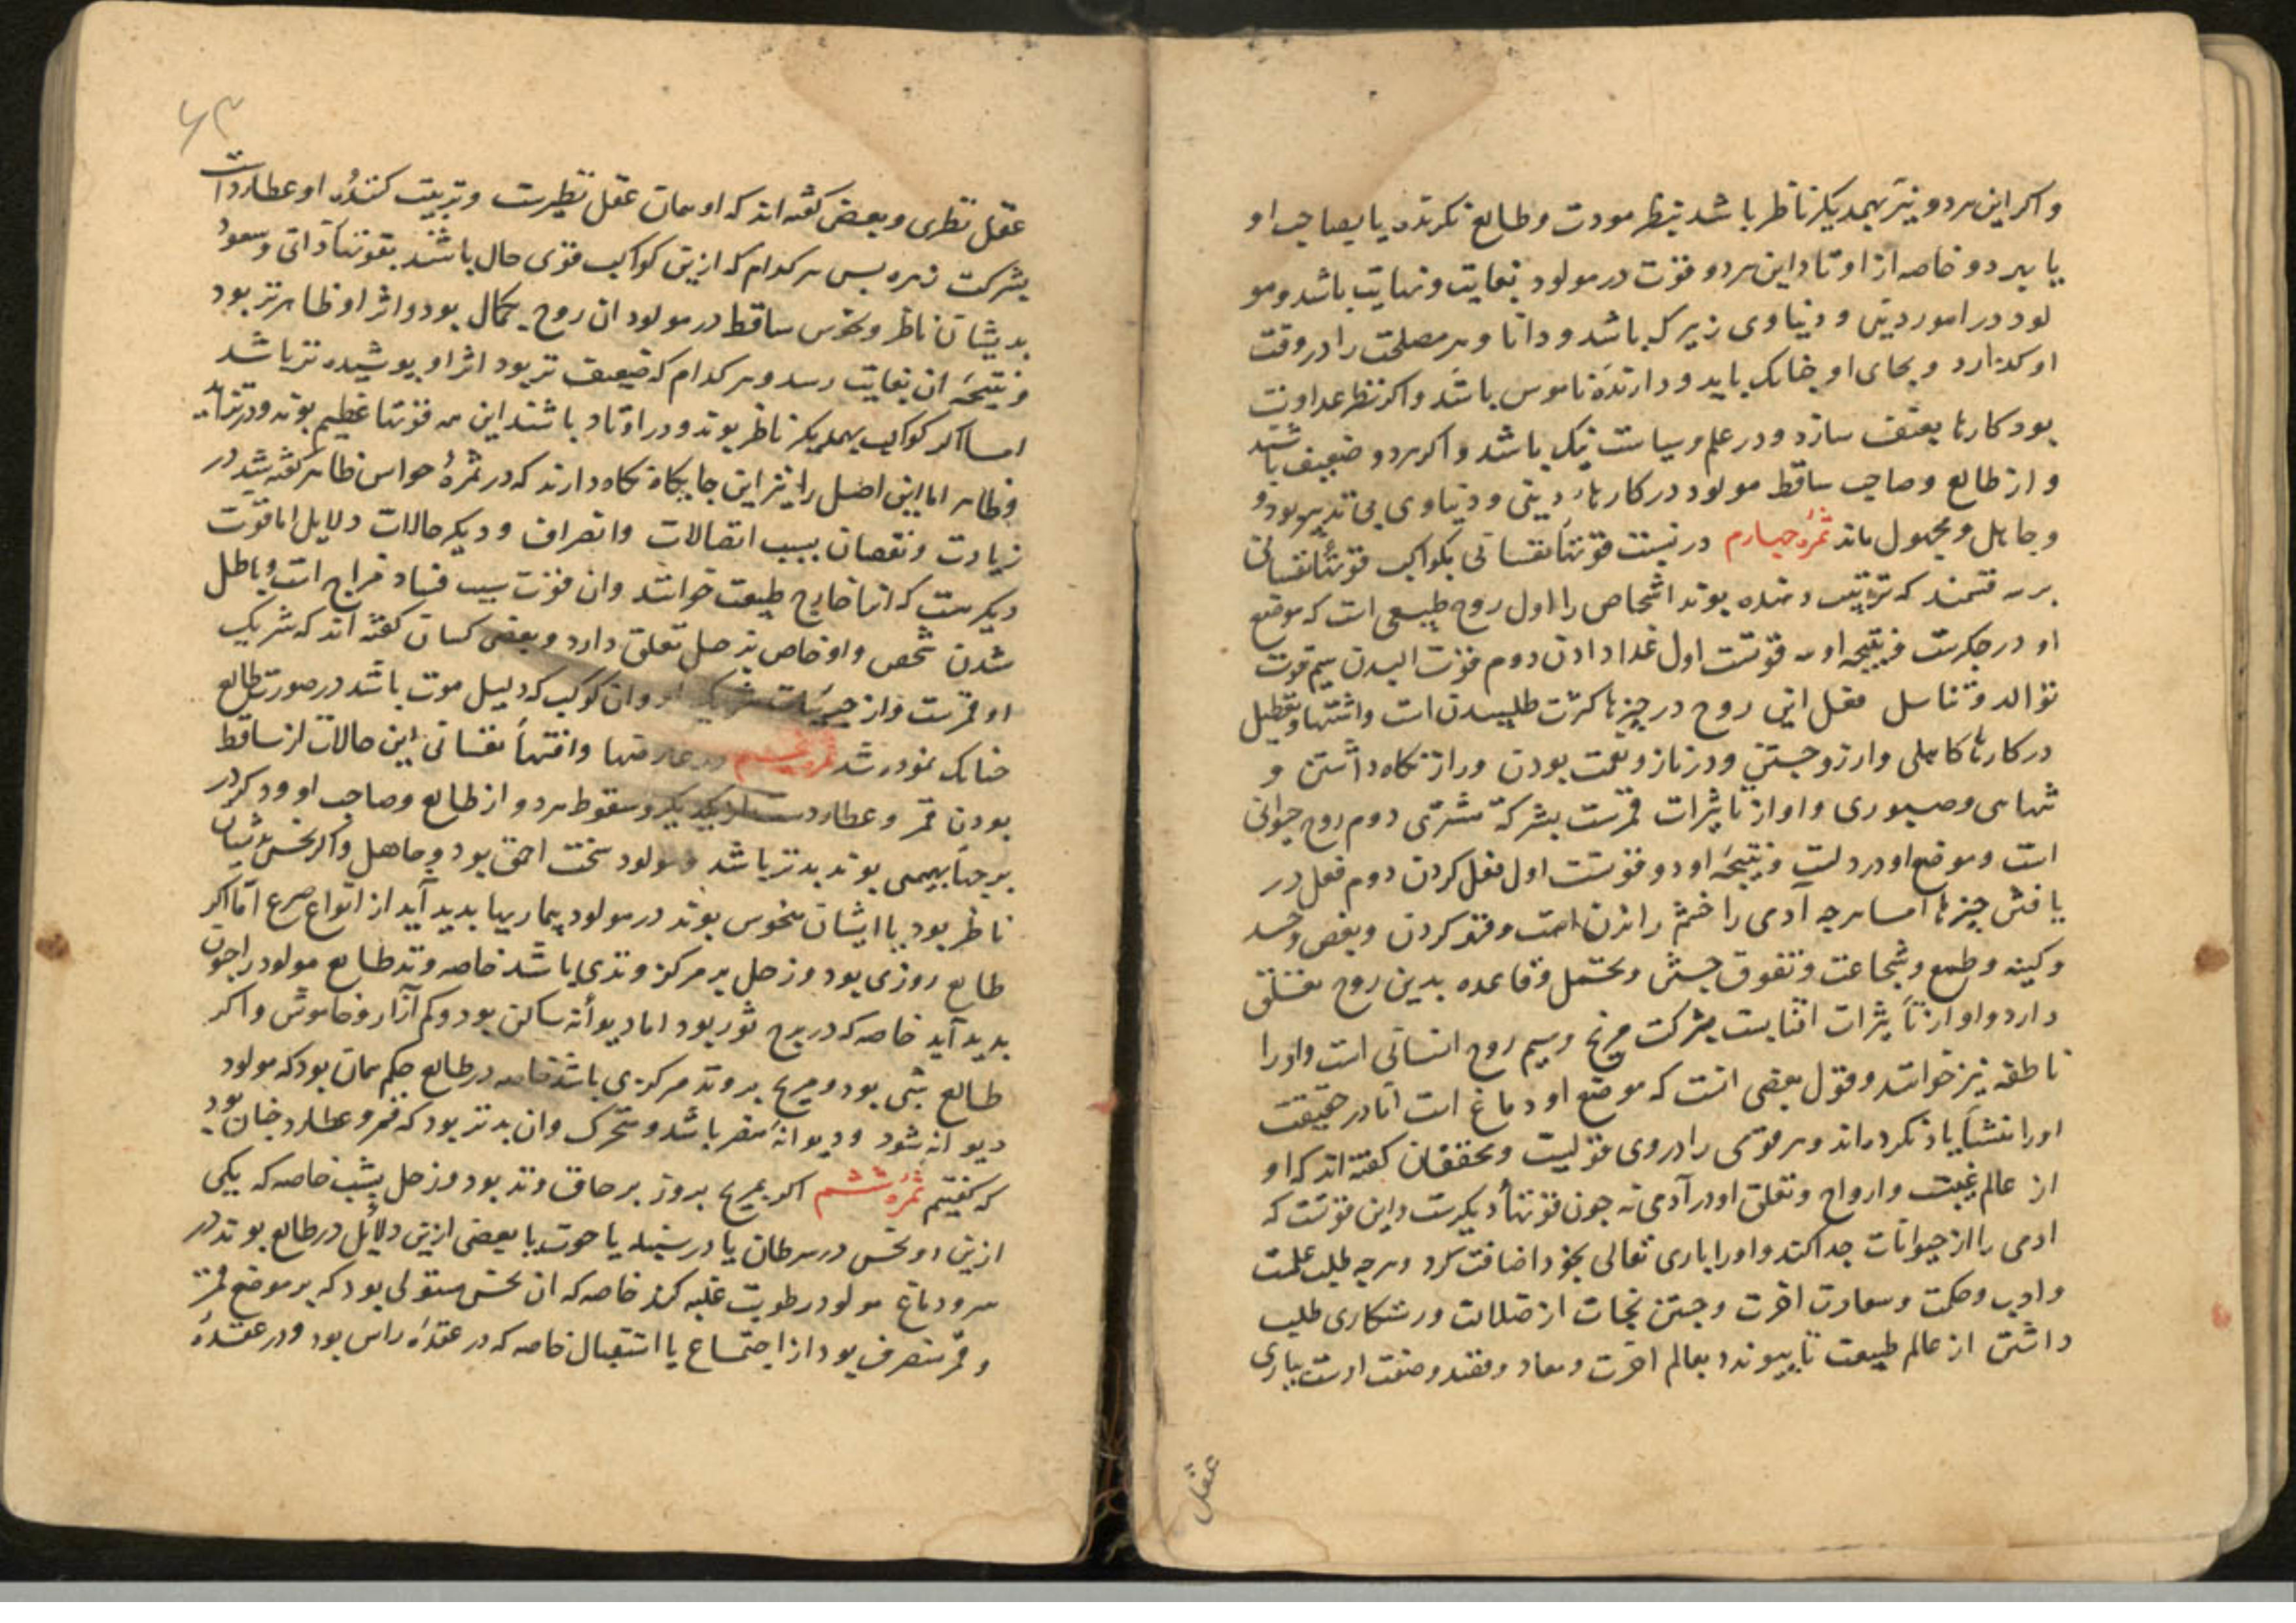 و اکر این هر دو نیر بهمدیکر ناظر باشد بنظر مودت و طالع نکرنده یا بصاحب او
یا بیر دو خاصه از اوتاد این هر دو قوت در مولود بغایت و نهایت باشد و مو
لود در امور دینی و دنیاوی زیرک باشد و دانا و هر مصلحت را در وقت
او کذارد و بجای او چنانک باید و دارندهٔ ناموس باشد و اکر نظر عداوت
بود کارها بعنف سازد و در علم و سیاست نیک باشد و اکر هر دو ضعیف باشند
و از طالع و صاحب ساقط مولود در کارهاء دینی و دنیاوی بی تدبیر بود و
و جاهل و مجهول ماند ثمرهٔ چهارم در نسبت قوتهاء نفسانی بکواکب قوتهاء نفسانی
بر سه قسمند که تربیت دهنده بوند اشخاص را اول روح طبیعی است که موضع
او در جکرست و نتیجه او سه قوتست اول غدا دادن دوم قوت البدن سیم قوت
توالد و تناسل فعل این روح در چیزها کثرت طلبیدن است و اشتها و تعطیل
در کارها کاهلی و ارزو جستن و در ناز و نعمت بودن و راز نکاه داشتن و
تنهایی و صبوری و او از تاثیرات قمرست بشرکة مشتری دوم روح حیوانی
است و موضع او در دلست و نتیجهٔ او دو قوتست اول فعل کردن دوم فعل در
یافتن چیزها اما هر چه آدمی را خشم راندن است و قهر کردن و بغض و حسد
و کینه و طمع و شجاعت و تفوق جستن و تحمل و قاعده بدین روح تعلق
دارد و او از تأثیرات افتابست بشرکت مریخ و سیم روح انسانی است و او را
ناطقه نیز خوانند و قول بعضی انست که موضع او دماغ است اما در حقیقت
او را نشأ یاد نکرده‌اند و هر قومی را در وی قولیست و محققان کفته اند که او
از عالم غیبت و ارواح و تعلق او در آدمی نه چون قوتهاء دیکرست و این قوتست که
ادمی را از حیوانات جدا کند و او را باری تعالی بخود اضافت کرد و هر چه طلب علمت
و ادب و حکمت و سعادت اخرت و جستن نجات از ضلالت و رستکاری طلب
داشتن از عالم طبیعت تا بیوندد بعالم اخرت و معاد و مقصد و صنعت اوست بیاری
عقل
۶۳
عقل نظری و بعضی کفته اند که او همان عقل نظریست و تربیت کنندهٔ او عطاردست
بشرکت زهره بس هر کدام که ازین کواکب قوی حال باشند بقوتهاء ذاتی و سعود
بدیشان ناظر و نحوس ساقط در مولود ان روح بکمال بود و اثر او ظاهرتر بود
و نتیجهٔ ان بغایت رسد و هر کدام که ضعیف تر بود اثر او بوشیده تر باشد
اما اکر کواکب بهمدیکر ناظر بوند و در اوتاد باشند این همه قوتها عظیم بوند و در تزاید
و ظاهر اما این اصل را نیز این جایکاه نکاه دارند که در ثمرهٔ حواس ظاهر کفته شد در
زیادت و نقصان بسبب اتصالات و انصراف و دیکر حالات دلایل اما قوت
دیکرست که انرا خارج طبیعت خوانند و ان قوت سبب فساد مزاج است و باطل
شدن شخص و او خاص بزحل تعلق دارد و بعضی کسان کفته اند که شریک
او قمرست و از جزئیات شریک او وان کوکب که دلیل موت باشد در صورت طالع
چنانک نموده شد ثمره پنجم در عارضها و افتهاء نفسانی این حالات از ساقط
بودن قمر و عطاردست از یکدیکر و سقوط هر دو از طالع و صاحب او و در کر در
برجهاء بهیمی بوند بدتر باشد و مولود سخت احمق بود و جاهل و اکر نحس بدیشان
ناظر بود یا ایشان منحوس بوند در مولود بیماریها بدید آید از انواع صرع اما اکر
طالع روزی بود و زحل بر مرکز وتدی باشد خاصه وتد طالع مولود را جنون
بدید آید خاصه که در برج ثور بود اما دیوانهٔ ساکن بود و کم آزار و خاموش و اکر
طالع شبی بود و مریخ بر وتد مرکزی باشد خاصه در طالع حکم همان بود که مولود
دیوانه شود و دیوانهٔ مضر باشد و متحرک وان بدتر بود که قمر و عطارد چنان بود
که کفتیم ثمرهٔ ششم اکر مریخ بروز بر حاق وتد بود و زحل بشب خاصه که یکی
ازین دو نحس در سرطان یا در سنبله یا حوت یا بعضی ازین دلایل در طالع بوند در
سر و دماغ مولود رطوبت غلبه کند خاصه که ان نحس مستولی بود که بر موضع قمر
و قمر منصرف بود از اجتماع یا استقبال خاصه که در عقدهٔ راس بود و در عقدهٔ